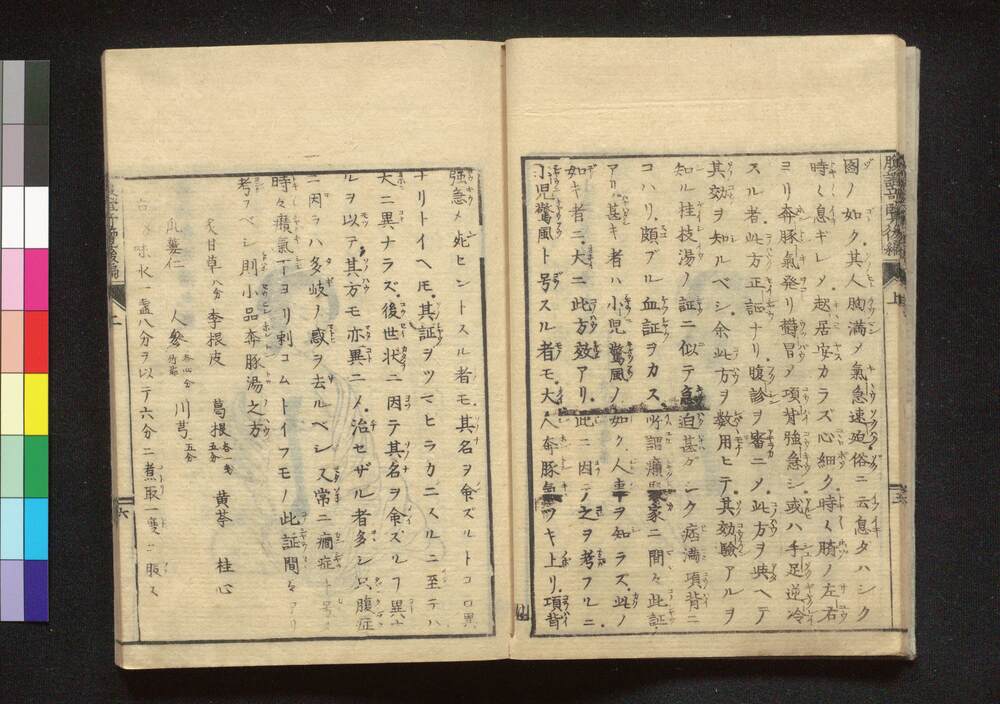 腹證奇覽後編 上
圖ノ如ク其人胸満〆氣急速迫俗ニ云息タハシク
時々息ギレ〆越居安カラズ心細ク時々臍ノ左右
ヨリ奔豚氣発リ欝冒〆項背強急シ或ハ手足逆冷
スル者此方正証ナリ腹診ヲ審ニ〆此方ヲ與ヘテ
其効ヲ知ルベシ余此方ヲ数用ヒテ其効驗アルヲ
知ル桂枝湯ノ証ニ似テ急迫甚ダシク痞満項背ニ
コハリ頗ブル血証ヲカス所謂癪家ニ間々此証
アリ甚キ者ハ小児驚風ノ如ク人事ヲ知ラズ此ノ
如キ者ニ大ニ此方效アリ此ニ因テ之ヲ考フルニ
小児驚風ト号スル者モ大人奔豚氣ツキ上リ項背
強急〆死セントスル者モ其名ヲ命ズルトコロ異
ナリトイヘ𪜈其証ヲツマビラカニスルニ至テハ
大ニ異ナラズ後世状ニ因テ其名ヲ命ズルヿ異ナ
ルヲ以テ其方モ亦異ニ〆治セザル者多シ只腹症
ニ因ラハ多岐ノ惑ヲ去ルベシ又常ニ癇症ト号〆
時々癪氣下ヨリ刺コムトイフモノ此証間々アリ
考フベシ則小品奔豚湯之方
甘草八分 李根皮 葛根各一戔五分 黄芩 桂心
栝蔞仁 人參 川芎五分
右 味水一盞八分ヲ以テ六分ニ煮取